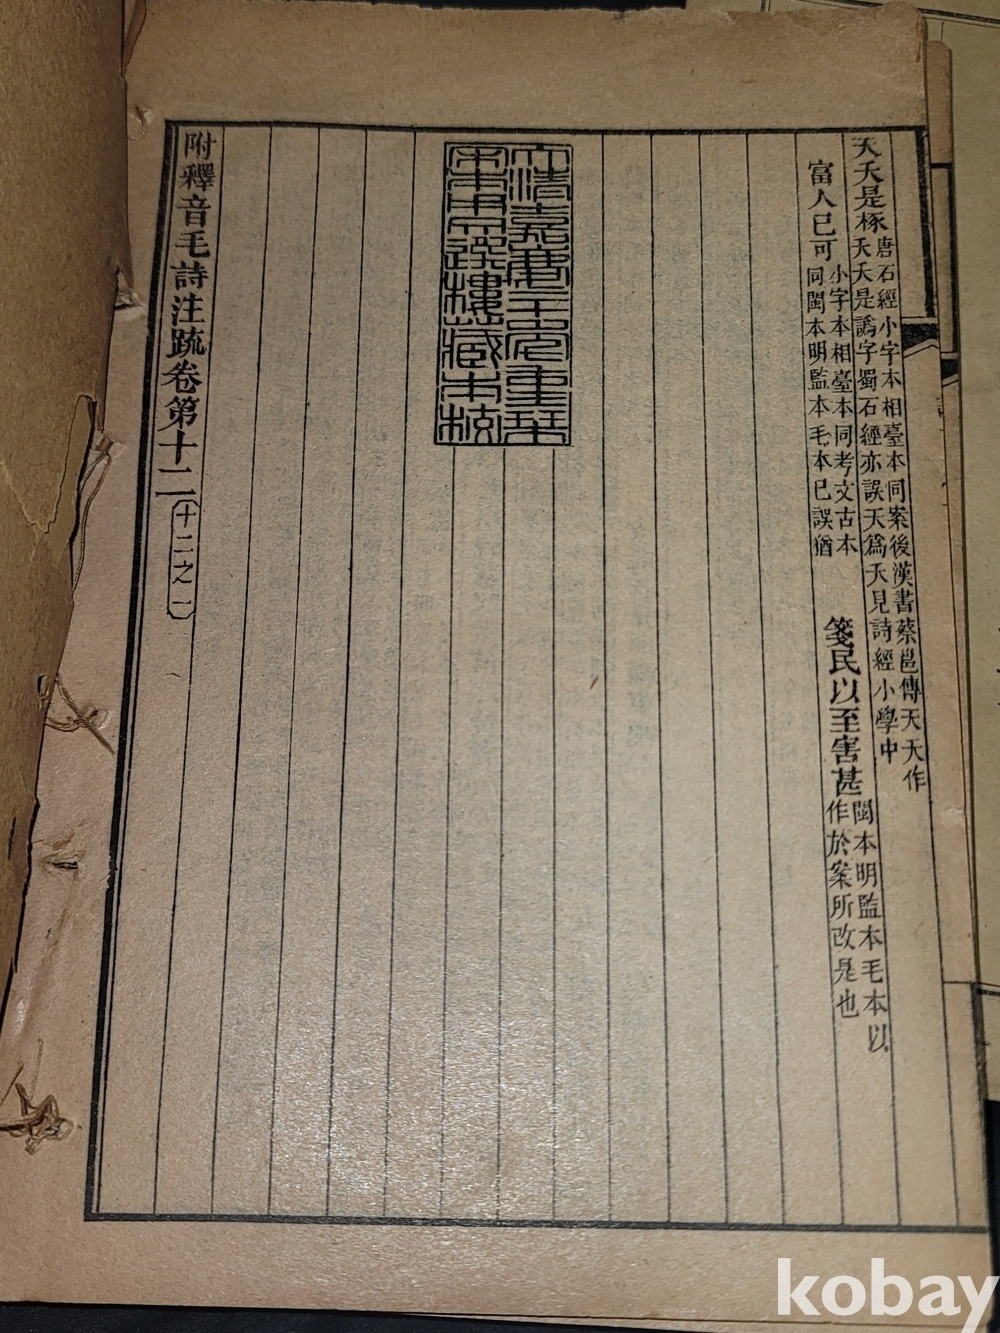 天夭是椓
唐石經小字本相臺本同案後漢書蔡邕傳天夭作
夭夭是譌字蜀石經亦誤天爲夭見詩經小學中
富人已可
小字本相臺本同考文古本
同閩本明監本毛本已誤猶
箋民以至害甚
閩本明監本毛本以
作於案所改是也
大清嘉慶二十年重栞
宋本用文選樓藏本校
附釋音毛詩注䟽卷第十二 十二之一
kobay